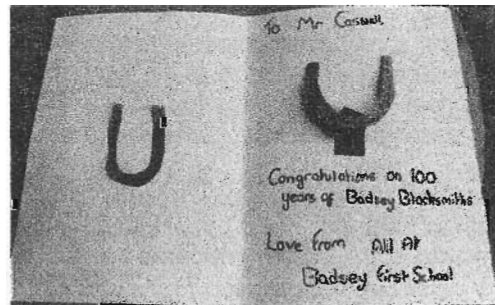 To Mr Caswell
Congratulations on 100
years of Badsey Blacksmiths
Love from All At
Badsey First School